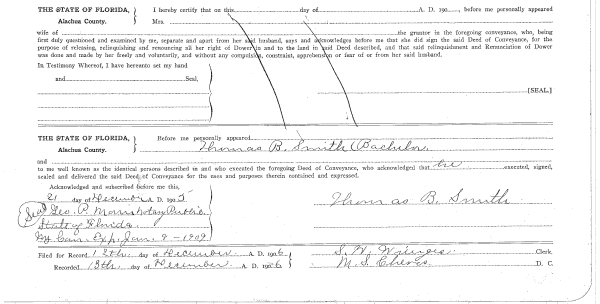 THE STATE OF FLORIDA, I hereby certify that on this day of A. D. 190 , before me personally appeared
Alachua County. Mrs.
wife of the grantor in the foregoing conveyance, who, being
first duly questioned and examined by me, separate and apart from her said husband, says and acknowledges before me that she did sign the said Deed of Conveyance, for the
purpose of releasing, relinquishing and renouncing all her right of Dower in and to the land in said Deed described, and that said relinquishment and Renunciation of Dower
was done and made by her freely and voluntarily, and without any compulsion, constraint, apprehension or fear of or from her said husband.
In Testimony Whereof, I have hereunto set my hand
and Seal,
[SEAL.]
THE STATE OF FLORIDA, Before me personally appeared
Alachua County. Thomas B. Smith (Bachelor
and
to me well known as the identical persons described in and who executed the foregoing Deed of Conveyance, who acknowledged that he executed, signed,
sealed and delivered the said Deed of Conveyance for the uses and purposes therein contained and expressed.
Acknowledged and subscribed before me this,
21 day of December A. D. 1905 Thomas B. Smith
Seal Geo. P. Morris Notary Public
State of Florida.
My Com. Exp. Jan. 9 - 1909
Filed for Record 12th day of December A. D. 1906 S. H. Wienges Clerk
Recorded 13th day of December A. D. 1906 M. S. Cheves D. C.